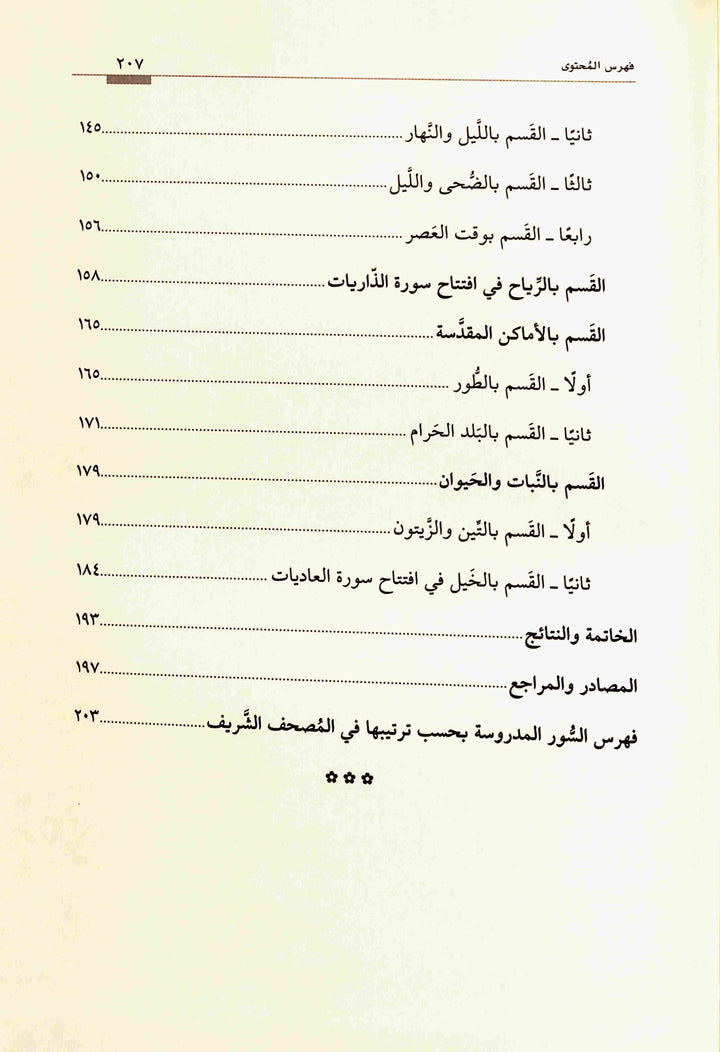 فهرس المُحتوى ٢٠٧
ثانيًا ـ القَسم باللَّيل والنَّهار ١٤٥
ثالثًا ـ القَسم بالضُّحى واللَّيل ١٥٠
رابعًا ـ القَسم بوقت العَصر ١٥٦
القَسم بالرِّياح في افتتاح سورة الذّاريات ١٥٨
القَسم بالأماكن المقدَّسة ١٦٥
أولًا ـ القَسم بالطُّور ١٦٥
ثانيًا ـ القَسم بالبَلد الحَرام ١٧١
القَسم بالنَّبات والحَيوان ١٧٩
أولًا ـ القَسم بالتِّين والزَّيتون ١٧٩
ثانيًا ـ القَسم بالخَيل في افتتاح سورة العاديات ١٨٤
الخاتمة والنتائج ١٩٣
المصادر والمراجع ١٩٧
فهرس السُّور المدروسة بحسب ترتيبها في المُصحف الشَّريف ٢٠٣